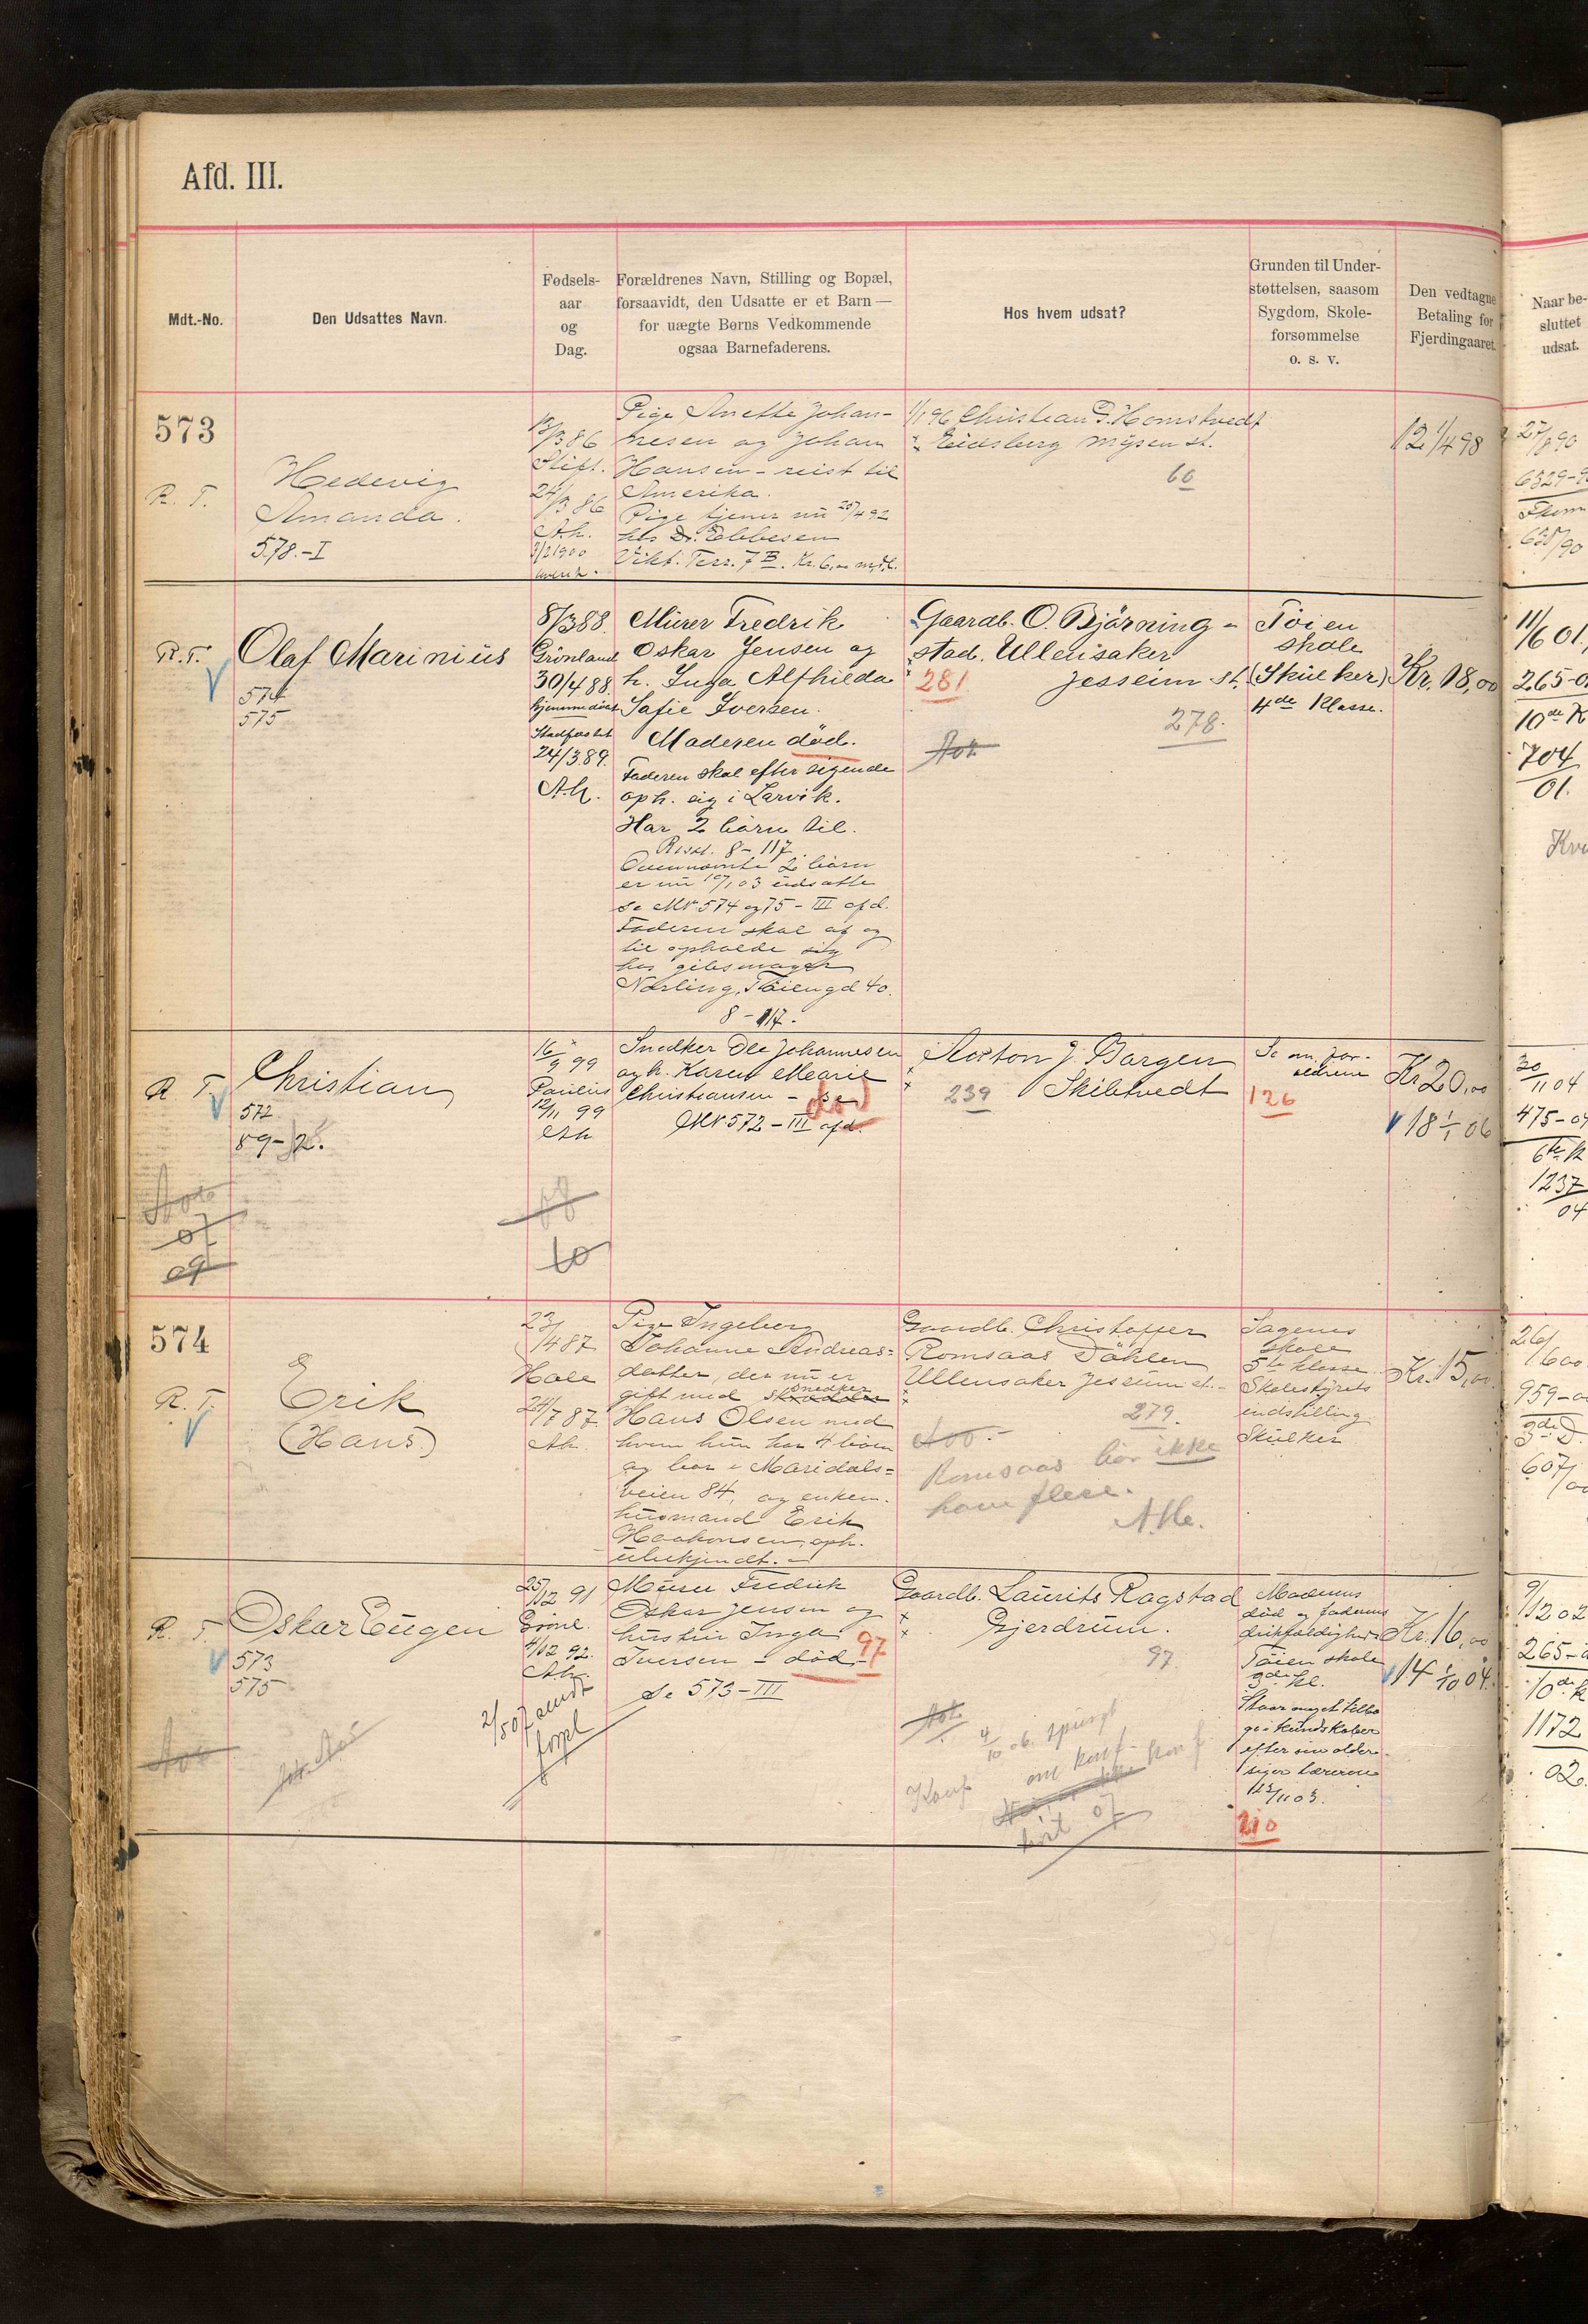 Afd. III.
Mdt.-No.
Den Udsattes Navn.
Fødsels-
aar
og
Dag.
Forældrenes Navn, Stilling og Bopæl,
forsaavidt, den Udsatte er et Barn —
for uægte Børns Vedkommende
ogsaa Barnefaderens.
Hos hvem udsat?
Grunden til Under-
støttelsen, saasom
Sygdom, Skole-
forsømmelse
o. s. v.
Den vedtagne
Betaling for
Fjerdingaaret.
Naar be-
sluttet
udsat.
573
R. T.
Hedevig
Amanda.
578.-I
13/3 86
Stift.
24/3 86
A.h.
3/2 1900
Pige Anette Johan-
nesen og Johan
Hansen - reist til
Amerika.
Pige tjener nu 25/4 92
hos Dr. Ebbesen
Vikt. Terr. 7 B. Kr. 6,00 mdl.
1/1 96 Christian P. Homstvedt
Eidsberg Mysen st.
60
12 1/4 98
27/8 90
6329-9
635/90
R. T.
Olaf Marinius
574
575
8/3 88.
Grönland
30/4 88.
hjemmedøbt
Stadfæstet
24/3 89.
A.h.
Murer Fredrik
Oskar Jensen og
h. Inga Alfhilda
Sofie Iversen.
Moderen död.
Faderen skal efter sigende
oph. sig i Larvik.
Har 2 börn til.
8 - 117
Ovennævnte 2 börn
er nu 10/1 03 udsatte
se MN 574 og 75 - III afd.
Faderen skal af og
til opholde sig
hos gibsmager
Norling, Töiengd 40.
8 - 117.
Gaardb. O. Björning -
stad. Ullensaker
281
Jesseim st.
278.
Töien
skole
(Skulker)
4de Klasse.
Kr. 18,00
11/6 01.
265-0
10de K
704
01.
R T.
Christian
572
89-12.
07
09
16/9 99
Paulus
12/11 99
A.h
10
Snedker Ole Johannesen
og h. Karen Marie
Christiansen - se
död
MN 572 - III afd.
Anton J. Borgen
239
Skibtvedt
Se om for-
ældrene
126
Kr 20,00
18 1/1 06
30/11 04
475-04
6te K
1237
04
574
R. T.
Erik
(Hans)
23/4 87
Hole
24/7 87.
A.h.
Pige Ingeborg
Johanne Andreas=
datter, der nu er
snedker
gift med
Hans Olsen med
hvem hun har 4 börn
og bor i Maridals=
veien 84, og enkem.
husmand Erik
Haakonsen, oph.
ubekjendt. -
Gaardb. Christoffer
Romsaas Döhlen
Ullensaker Jesseim st. -
279.
Romsaas bör ikke
have flere.
Sagenes
skole
5te klasse
Skolestyrets
indstilling
Skulker
Kr. 15,00.
26/1 600
959-0
3die D.
607/
R. T.
Oskar Eugen
573
575
25/12 91
Grönl.
4/12 92.
A.h.
Murer Fredrik
Oskar Jensen og
hustru Inga
Iversen - död -
97
Se 573 - III
Gaardb. Laurits Ragstad
Gjerdrum.
97
4/10 06. spurgt
om konf.
Konf
07
Moderens
död og faderens
drikfældighed
Töien skole
3die kl.
Staar meget tilba-
ge i kundskaber
efter sin alder -
siger læreren
12/11 03.
210
Kr. 16,00
14 1/10 04.
9/12 02
265-0
10de K
1172
02.